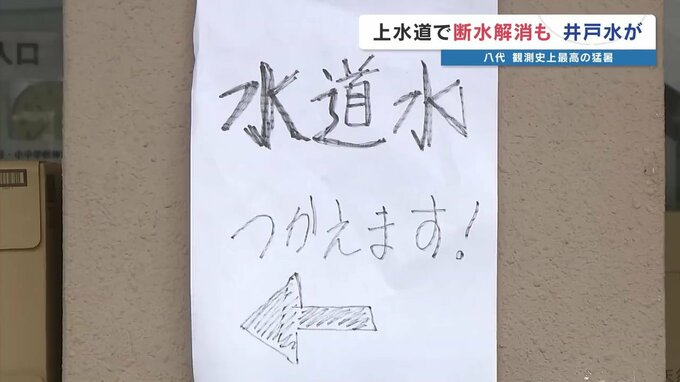 上水道で断水解消も 井戸水が
八代 観測史上最高の猛暑
入口
水道水
つかえます!